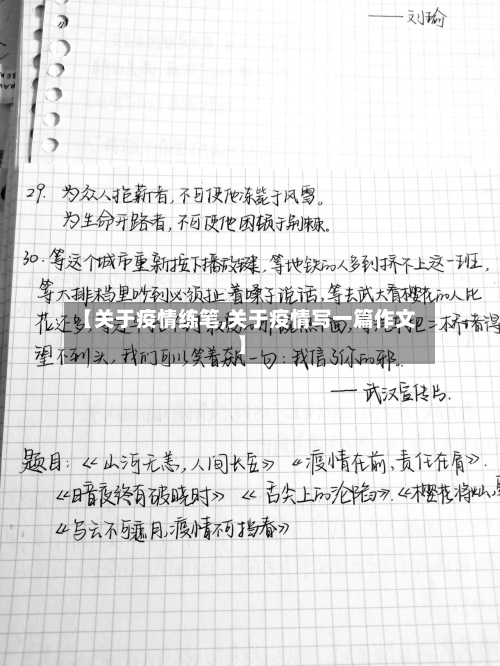 ——刘瑜
29. 为众人抱薪者,不可使他冻毙于风雪。
为生命开路者,不可使他困顿于荆棘。
30. 等这个城市重新按下播放键,等地铁的人多到挤不上这一班,
等大排档里吵到必须扯着嗓子说话,等去武大看樱花的人比
花还多,等
望不到头,我们可以笑着 一句:我信了你的邪。
——武汉宣传片.
【关于疫情练笔,关于疫情写一篇作文
】
题目:《山河无恙,人间长安》《疫情在前,责任在肩》.
《暗夜终有破晓时》《舌尖上的沦陷》.《樱花将灿,
《乌云不可遮月,疫情不可挡春》